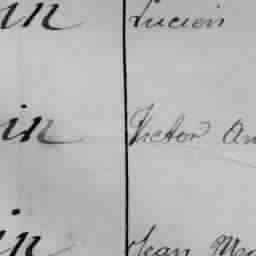 in Lucien
in Victor
in Jean